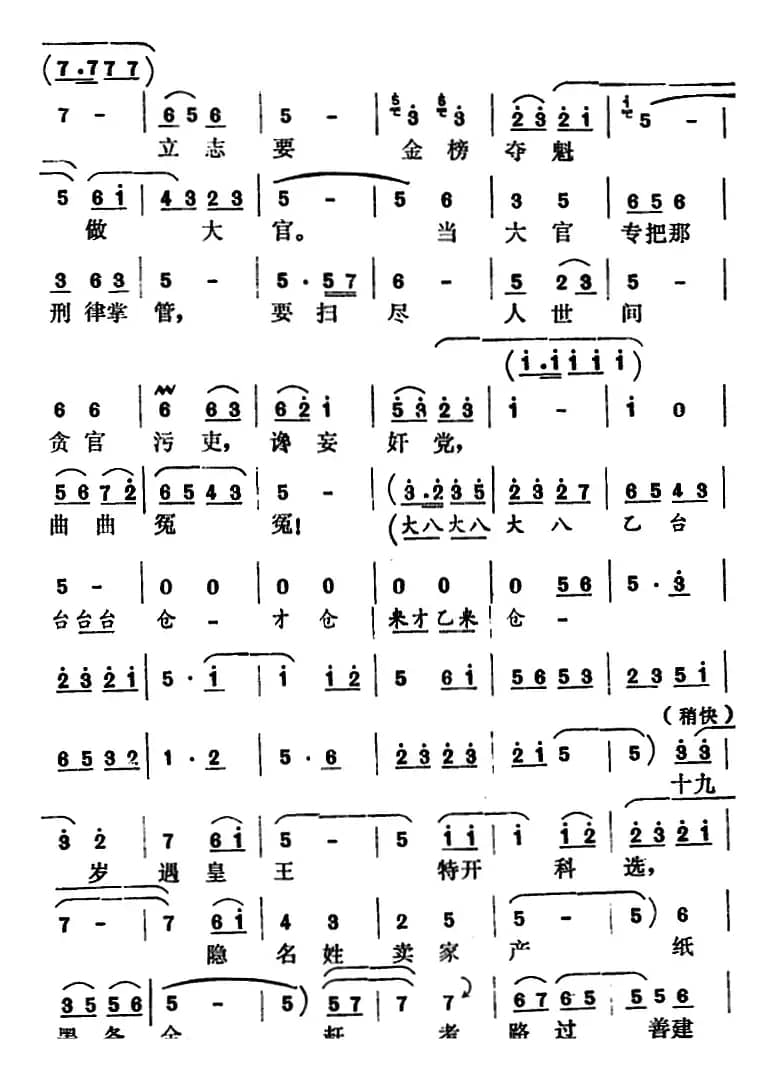 (7·777 7)
7 - | 6 5 6 | 5 - | 3 3 | 2 3 2 1 | 5 - |
立志 要 金 榜 夺 魁
5 6 1 | 4 3 2 3 | 5 - | 5 6 | 3 5 | 6 5 6 |
做 大 官。 当 大 官 专把那
3 6 3 | 5 - | 5 · 5 7 | 6 - | 5 2 3 | 5 - |
刑 律掌 管， 要 扫 尽 人 世 间
(1·1 1 1 1)
6 6 | 6 6 3 | 6 2 1 | 5 3 2 3 | 1 - | 1 0
贪 官 污 吏， 谗 妄 奸 党，
5 6 7 2 | 6 5 4 3 | 5 - | (3·2 3 5 | 2 3 2 7 | 6 5 4 3 |
曲 曲 冤 冤! (大八大八 大 八 乙 台
5 - | 0 0 | 0 0 | 0 0 | 0 5 6 | 5 · 3 |
台台台 仓 - 才 仓 | 来才乙来 | 仓 -
2 3 2 1 | 5 · 1 | 1 1 2 | 5 6 1 | 5 6 5 3 | 2 3 5 1 |
(稍快)
6 5 3 2 | 1 · 2 | 5 · 6 | 2 3 2 3 | 2 1 5 | 5) 3 3 |
十九
3 2 | 7 6 1 | 5 - | 5 1 1 | 1 1 2 | 2 3 2 1 |
岁 遇 皇 王 特开 科 选，
7 - | 7 6 1 | 4 3 | 2 5 | 5 - | 5) 6 |
隐 名 姓 卖 家 产 纸
3 5 5 6 | 5 - | 5) 5 7 | 7 7 | 6 7 6 5 | 5 5 6 |
路 过 善建